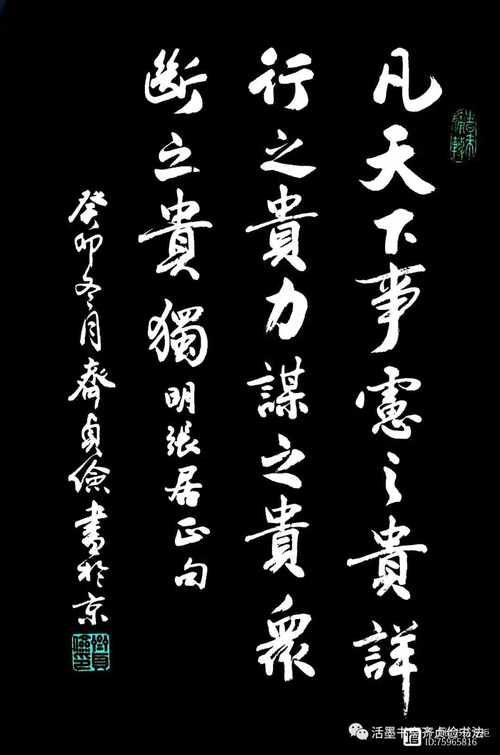 凡天下事慮之貴詳
行之貴力謀之貴衆
斷之貴獨明張居正句
癸卯冬月齊貞儉書於京
活墨书斋齐贞俭书法
ID:75965816